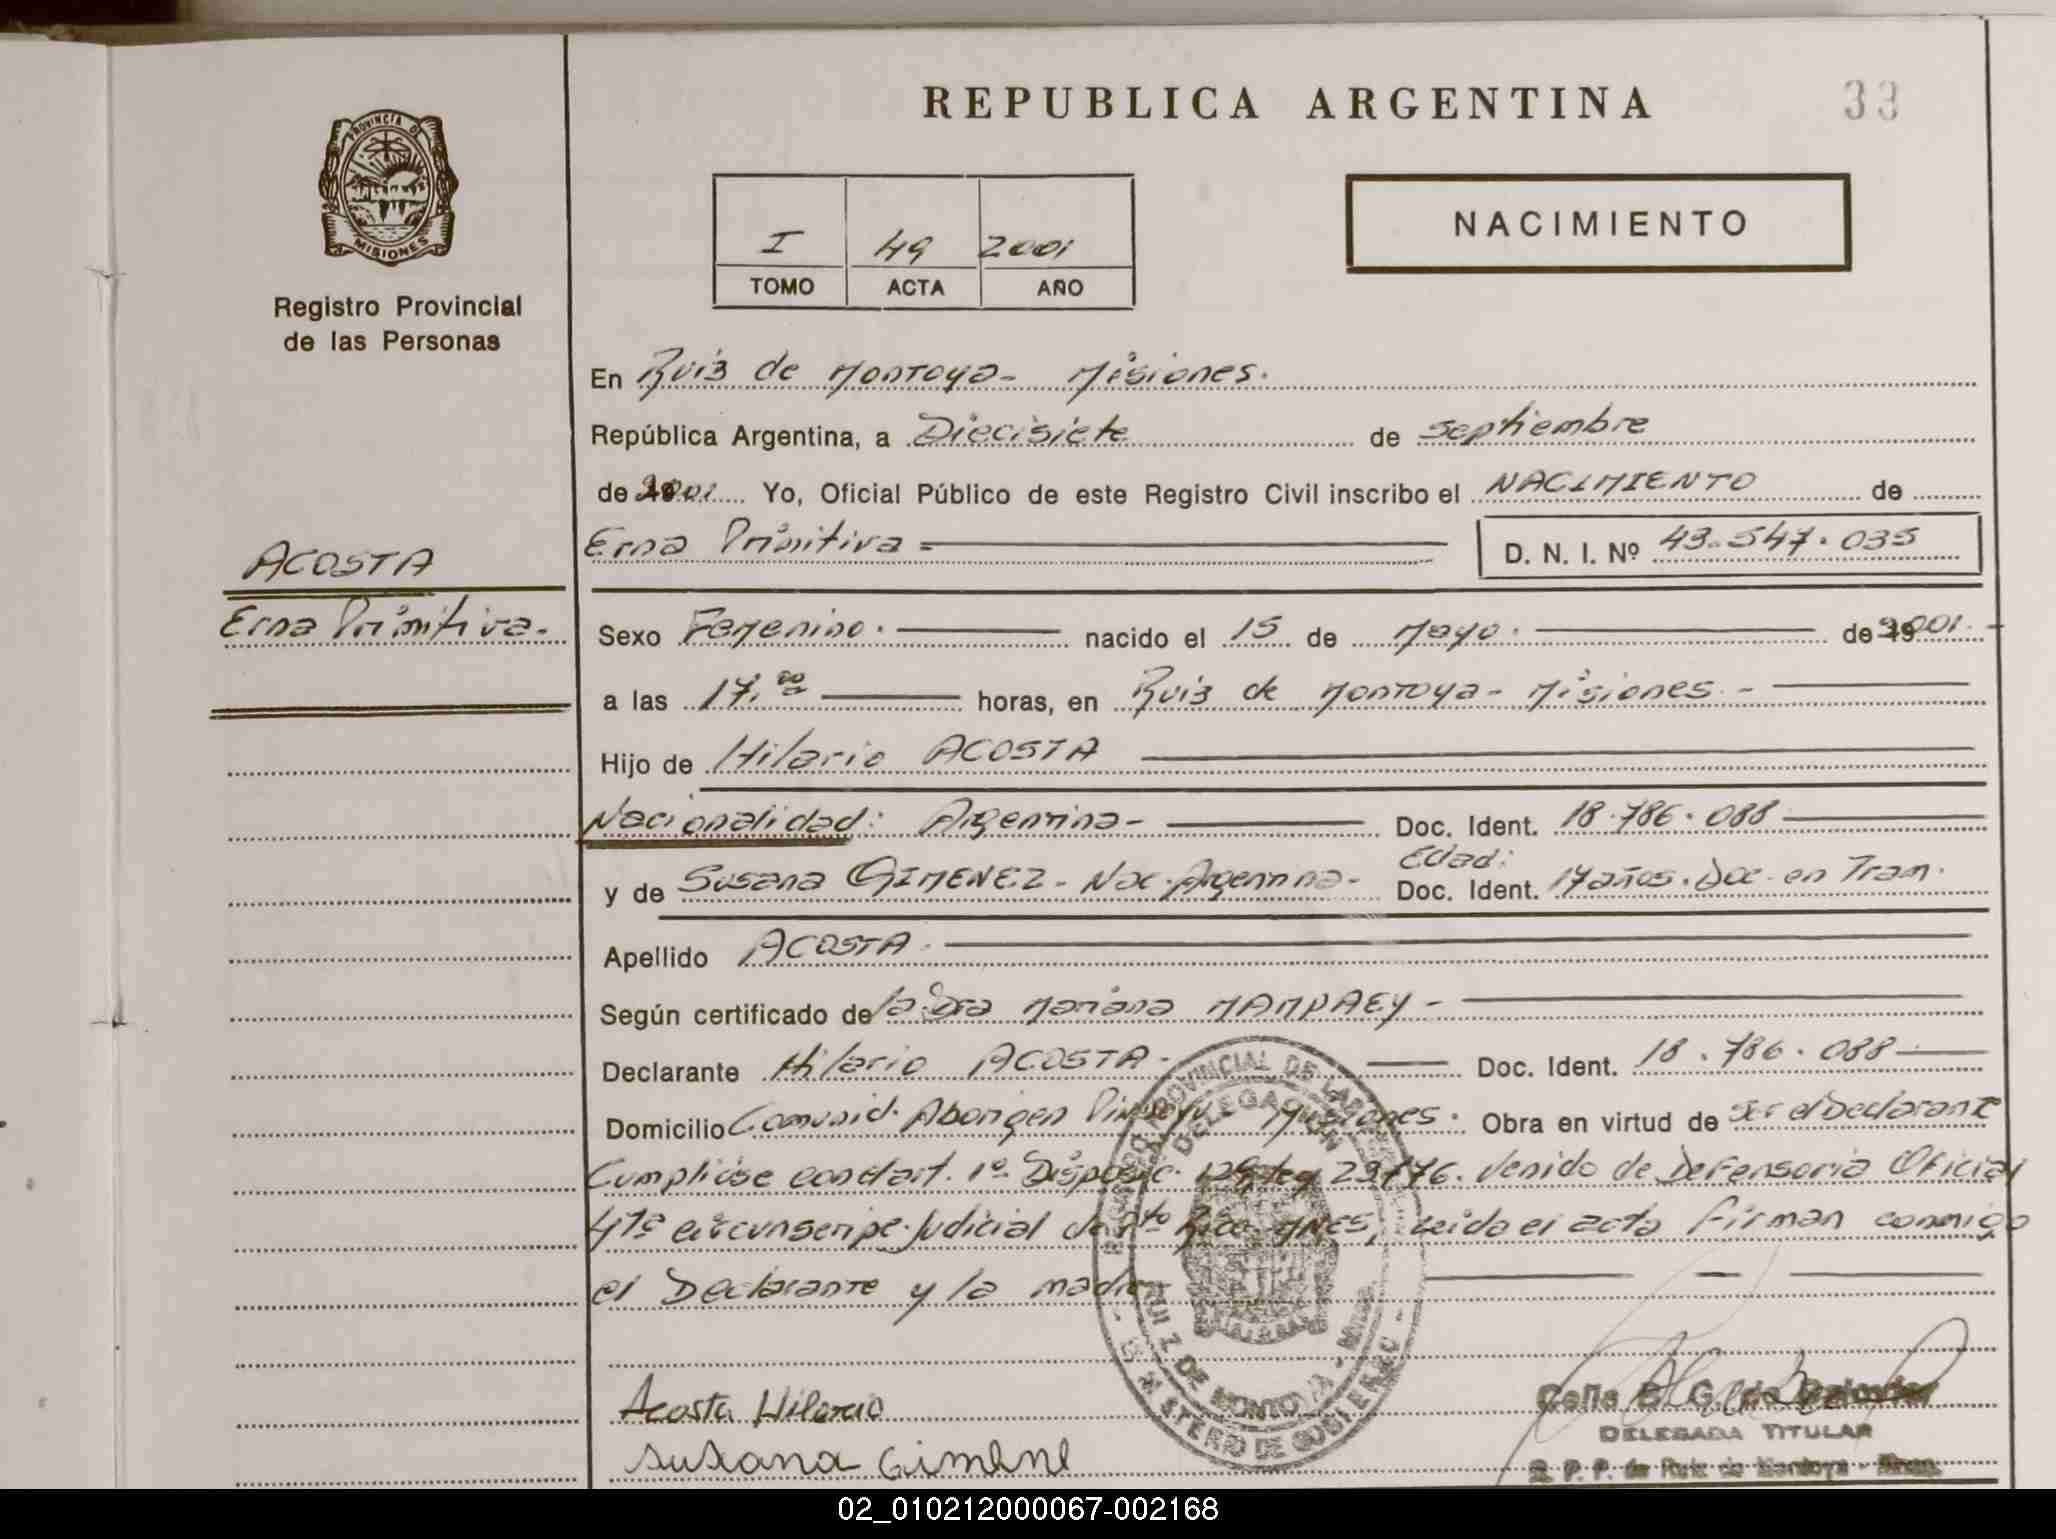 REPUBLICA ARGENTINA
33
PROVINCIA DE
MISIONES
Registro Provincial
de las Personas
I 49 2001
TOMO ACTA AÑO
NACIMIENTO
En Ruiz de Montoya - Misiones.
República Argentina, a Diecisiete de septiembre
de 2001 Yo, Oficial Público de este Registro Civil inscribo el NACIMIENTO de
Erna Primitiva = D. N. I. Nº 43.547.035
ACOSTA
Erna Primitiva.
Sexo Femenino. nacido el 15 de Mayo. de 2001.
a las 17.00 horas, en Ruiz de Montoya - Misiones. -
Hijo de Hilario ACOSTA
Nacionalidad: Argentina - Doc. Ident. 18.786.088
Edad:
y de Susana GIMENEZ - Nac. Argentina - Doc. Ident. 17 años. Doc. en Tram.
Apellido ACOSTA.
Según certificado de la Dra Mariana MAMPAEY -
Declarante Hilario ACOSTA - Doc. Ident. 18.786.088
Domicilio Comunid. Aborigen Misiones. Obra en virtud de ser el Declarante
Cumpliose con el art. 1º. Disposic. 29776. Venido de Defensoria Oficial
4Ta circunscripc. Judicial de Pto Rico MNES, leida el acta firman conmigo
el Declarante y la madre
REGISTRO PROVINCIAL DE LAS
DELEGACION
RUIZ DE MONTOYA - Mnes.
MINISTERIO DE GOBIERNO
Acosta Hilario
Susana Gimene
DELEGADA TITULAR
R. P. P. de Ruiz de Montoya - Mnes.
02_010212000067-002168